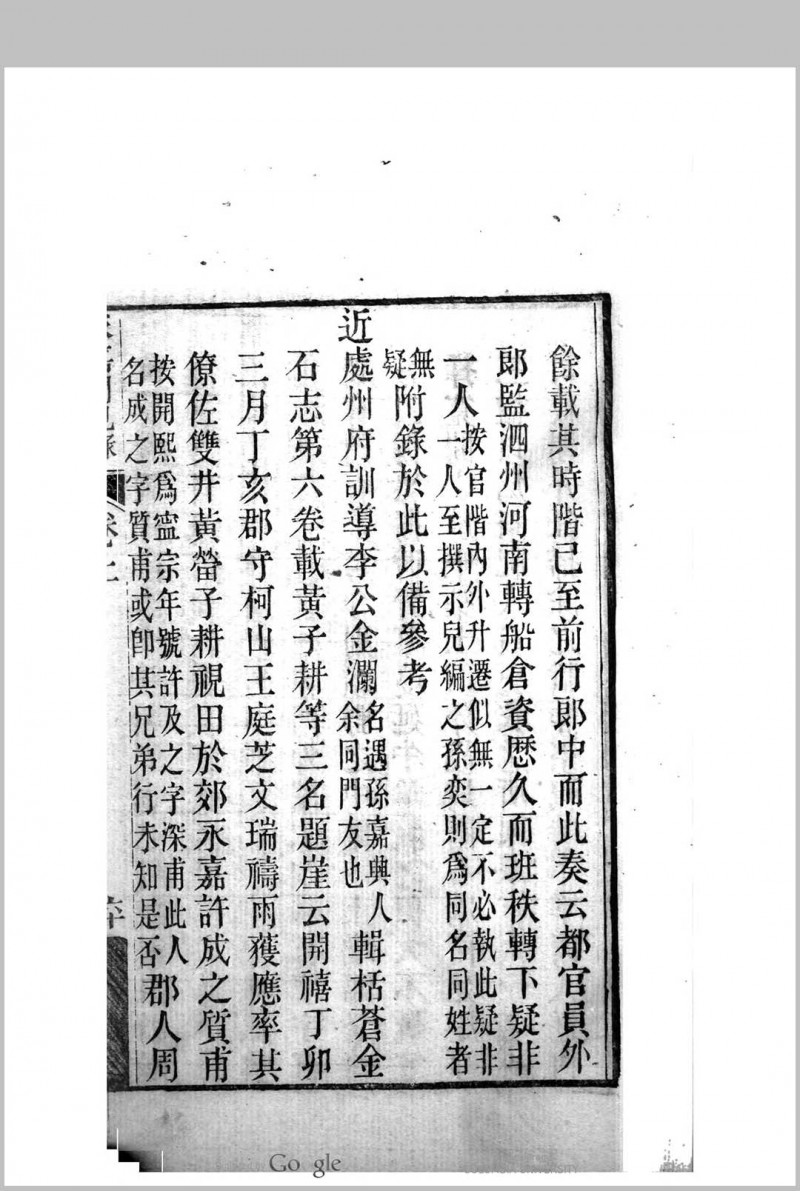 餘載其時階已至前行郎中而此奏云都官員外
郎監泗州河南轉船倉資歷久而班秩轉下疑非
一人按官階內外升遷似無一定不必執此疑非
一人至撰示兒編之孫奕則爲同名同姓者
無
疑附錄於此以備參考
近處州府訓導李公金瀾名遇孫嘉興人
余同門友也輯栝蒼金
石志第六卷載黃子耕等三名題崖云開禧丁卯
三月丁亥郡守柯山王庭芝文瑞禱雨獲應率其
僚佐雙井黃㽦子耕視田於郊永嘉許成之質甫
按開熙爲寧宗年號許及之字深甫此人
名成之字質甫或卽其兄弟行未知是否郡人周
卷上
Google